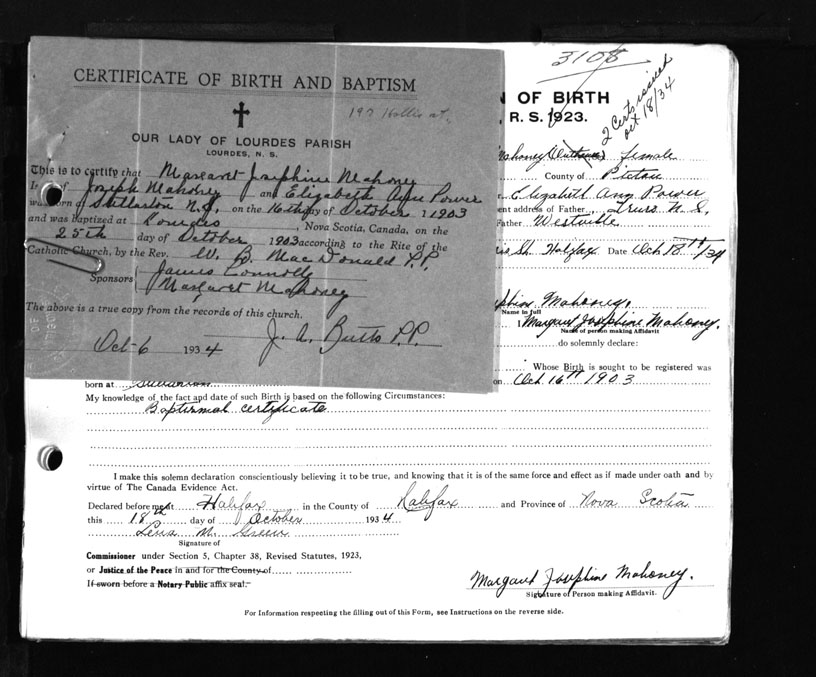 CERTIFICATE OF BIRTH AND BAPTISM
197 Hollis st.
OUR LADY OF LOURDES PARISH
LOURDES, N. S.
This is to certify that Margaret Josephine Mahoney
of Joseph Mahoney and Elizabeth Ann Power
was born at Stellarton N.S. on the 16th day of October 1903
and was baptized at Lourdes, Nova Scotia, Canada, on the
25th day of October 1903 according to the Rite of the
Catholic Church, by the Rev. W. B. MacDonald P.P.
Sponsors James Connolly
Margaret Mahoney
The above is a true copy from the records of this church.
Oct 6 1934 J. A. Butts P.P.
3108
2 Certs issued
Oct 18/34
N OF BIRTH
R. S. 1923.
Mahoney female
County of Pictou
Elizabeth Ann Power
ent address of Father Truro N.S.
Father Westville
St. Halifax Date Oct 18th/34
phine Mahoney.
Name in full
I Margaret Josephine Mahoney.
Name of person making Affidavit
do solemnly declare:
Whose Birth is sought to be registered was
born at Stellarton on Oct 16th 1903
My knowledge of the fact and date of such Birth is based on the following Circumstances:
Baptismal certificate
I make this solemn declaration conscientiously believing it to be true, and knowing that it is of the same force and effect as if made under oath and by
virtue of The Canada Evidence Act.
Declared before me at Halifax in the County of Halifax and Province of Nova Scotia
this 18th day of October 1934
Lena M. Green
Signature of
Commissioner under Section 5, Chapter 38, Revised Statutes, 1923,
or Justice of the Peace in and for the County of
If sworn before a Notary Public affix seal.
Margaret Josephine Mahoney.
Signature of Person making Affidavit.
For Information respecting the filling out of this Form, see Instructions on the reverse side.